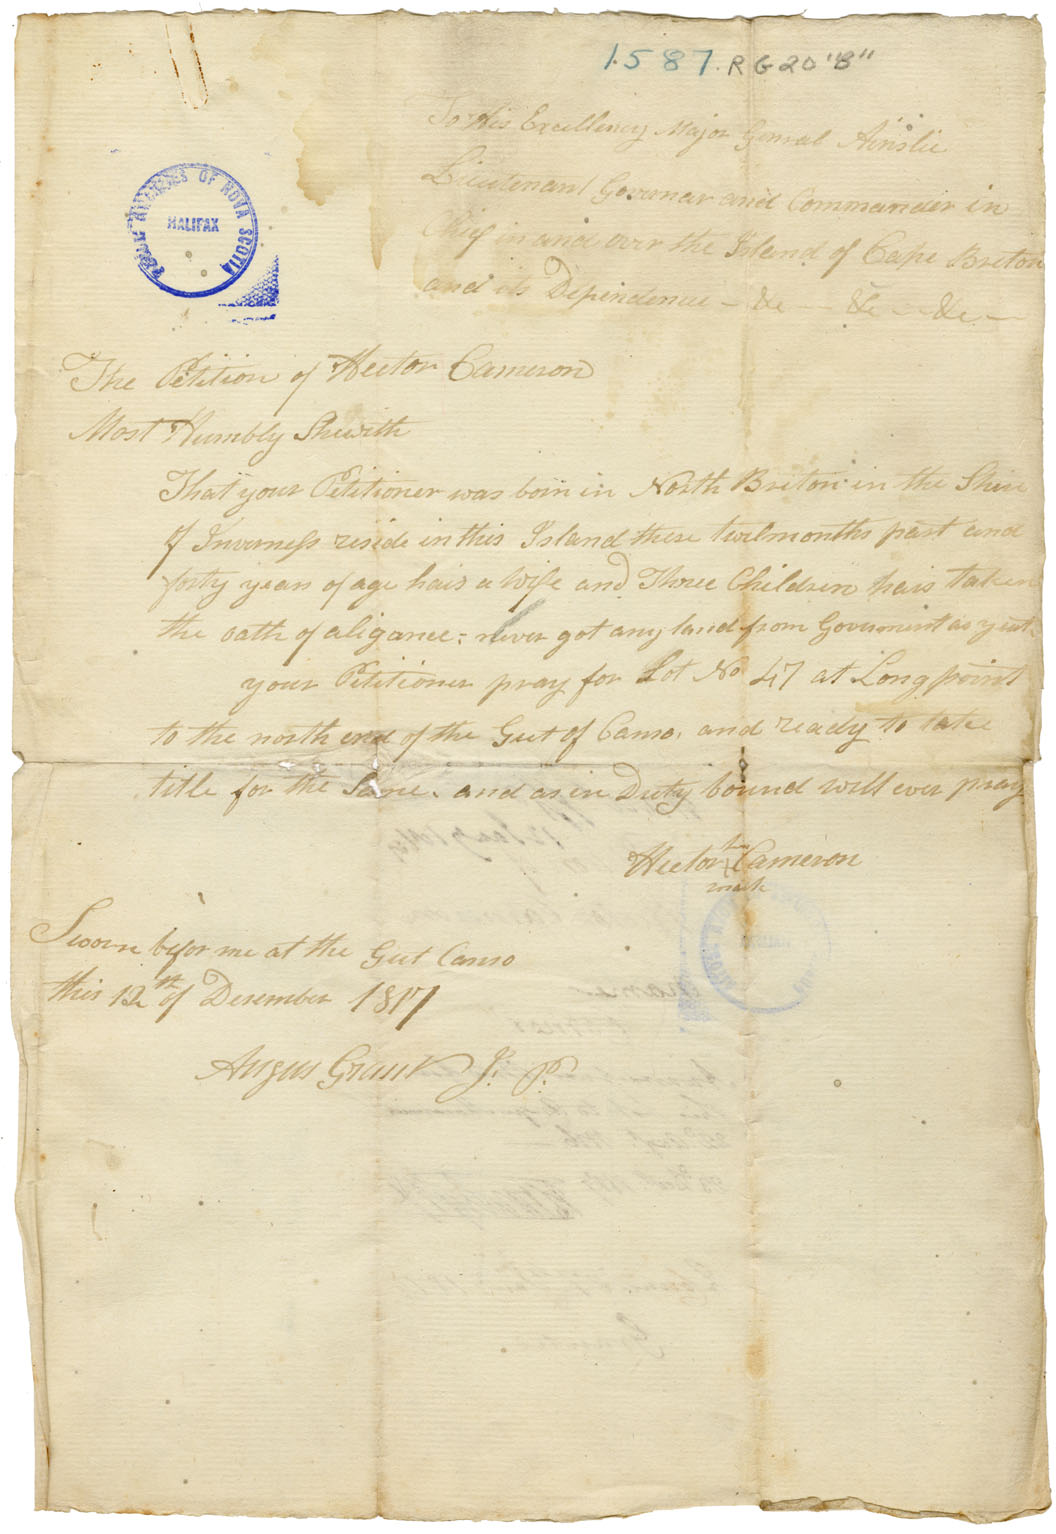 1587. RG20 "B"
To His Excellency Major Genral Ainslie
Lieutenant Govornar and Commander in
Chief in and over the Island of Cape Breton
and its Dependence — &c — &c — &c —
PUBLIC ARCHIVES OF NOVA SCOTIA
HALIFAX
The Petition of Hector Cameron
Most Humbly Shewith
That your Petitioner was born in North Breton in the Shire
of Inverness reside in this Island these twelmonths past and
forty years of age hais a wife and Three Children hais taken
the oath of aligance: never got any land from Goverment as yeat.
your Petitioner pray for Lot No 47 at Long point
to the north end of the Gut of Canso, and ready to take
title for the Same. and as in Duty bound will ever pray
Hector his X Cameron
mark
Sworn befor me at the Gut Canso
this 12th of Desember 1817
Angus Grant J. P.